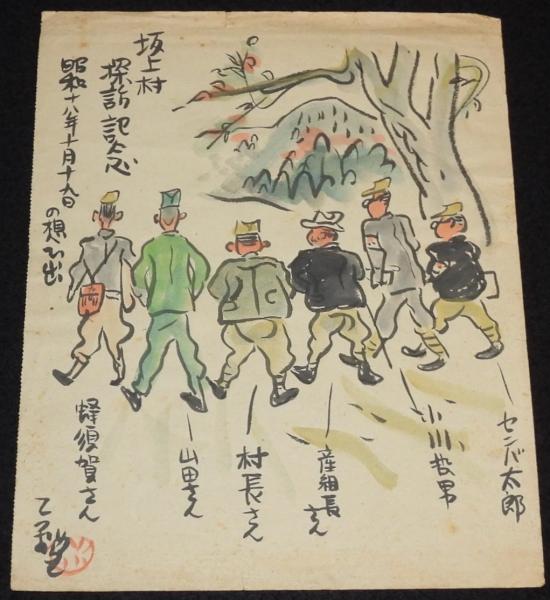 坂上村
探訪記念
昭和十八年十月十九日
の想ひ出
センバ太郎
小川
産組長
さん
村長さん
山田さん
蜂須賀さん